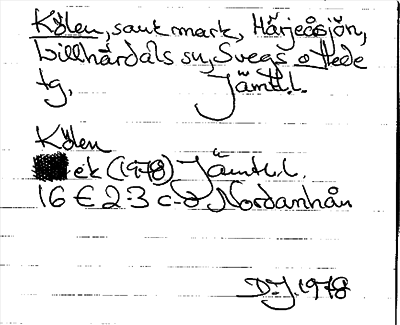 Kölen, samt mark, Härjeåsjön,
Lillhärdals sn, Svegs o Hede
tg, Jämtl.l.
Kölen
ek (1978) Jämtl.l.
16 E 2-3 c-d Nordanhån
D.J. 1978